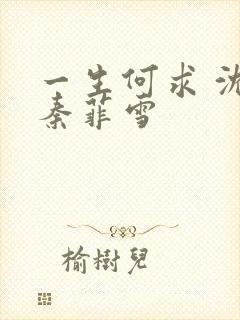 一生何求 沈
秦菲雪
榆樹兒